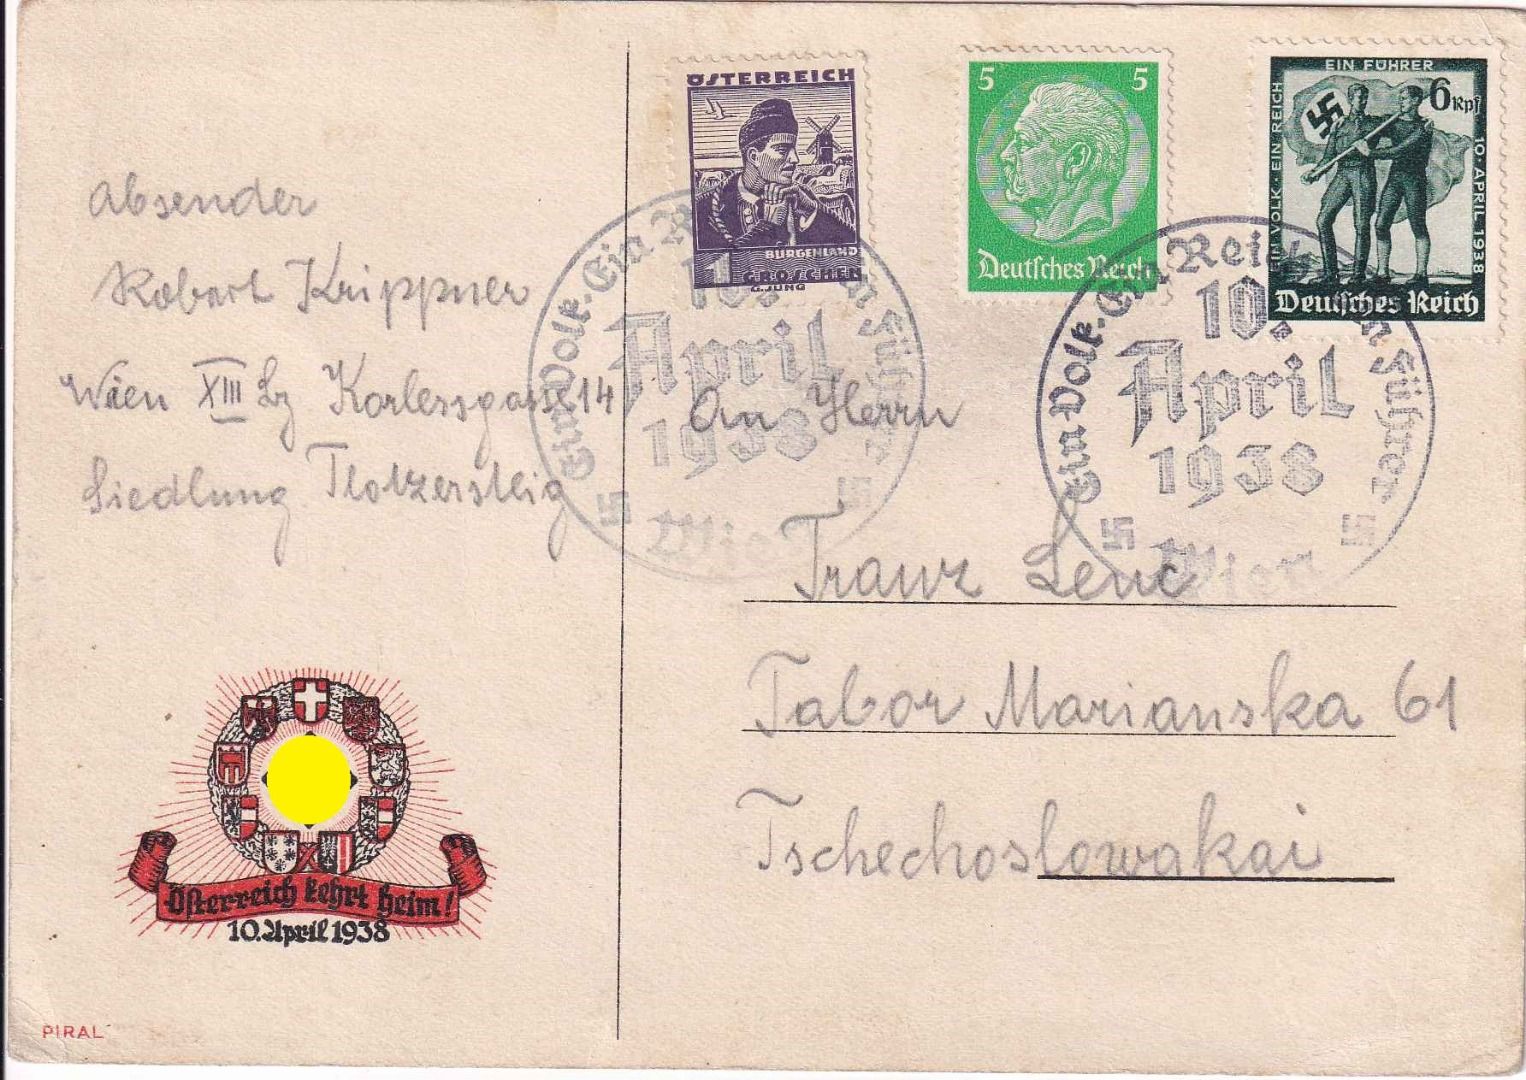 Absender
Robert Krippner
Wien XIII Lz Karlessgasse 14
Siedlung Flötzersteig
Österreich kehrt heim!
10. April 1938
PIRAL
ÖSTERREICH
BURGENLAND
1 GROSCHEN
G. JUNG
5 5
Deutsches Reich
EIN VOLK · EIN REICH
EIN FÜHRER
10 · APRIL 1938
6 Rpf
Deutsches Reich
Ein Volk · Ein Reich Ein Führer
10. April 1938
Wien
Ein Volk · Ein Reich Ein Führer
10. April 1938
Wien
An Herrn
Franz Lenc
Tabor Marianska 61
Tschechoslowakai